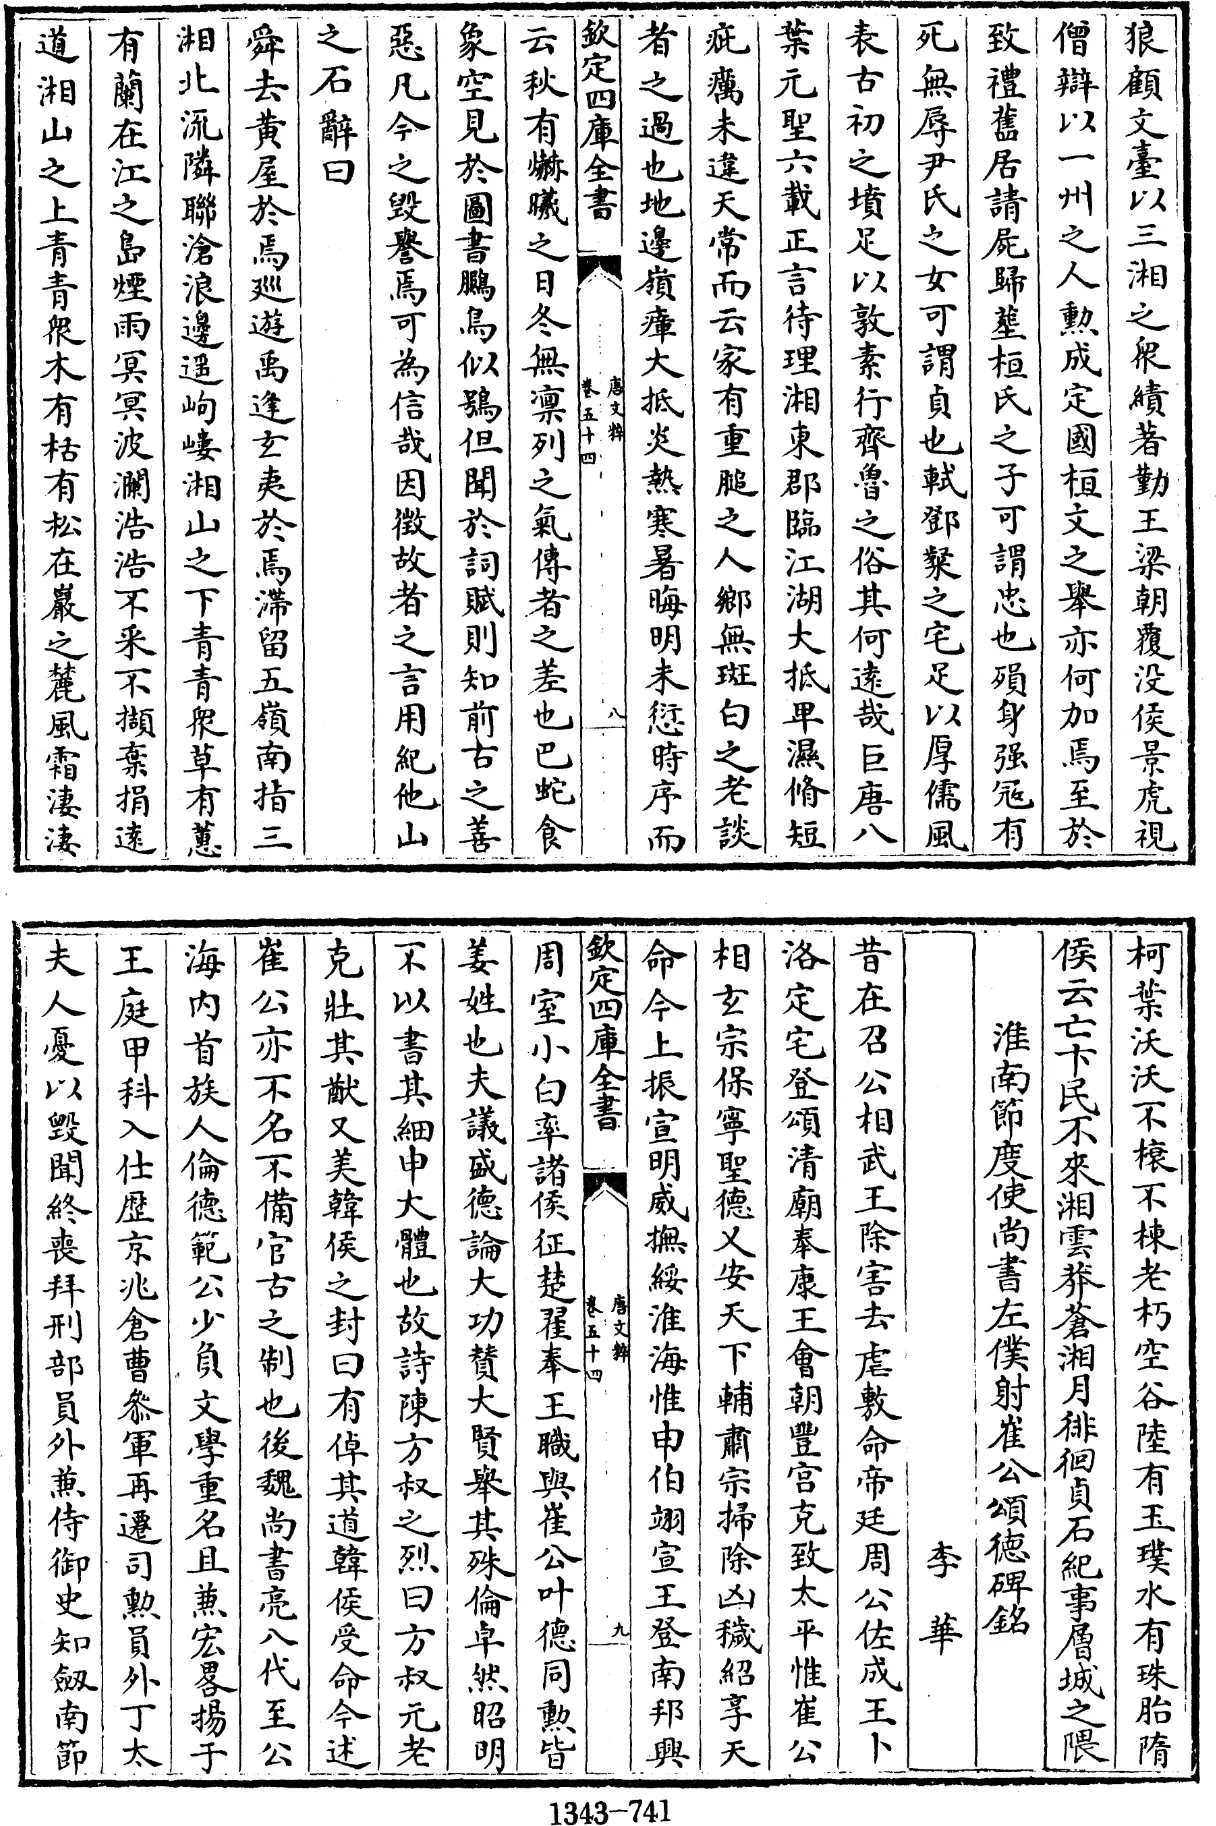 狼顧文臺以三湘之衆績著勤王梁朝覆没侯景虎視
僧辯以一州之人勲成定國桓文之舉亦何加焉至於
致禮舊居請屍歸塟桓氏之子可謂忠也殞身强寇有
死無辱尹氏之女可謂貞也軾鄧粲之宅足以厚儒風
表古初之墳足以敦素行齊魯之俗其何逺哉巨唐八
葉元聖六載正言待理湘東郡臨江湖大抵卑濕脩短
疵癘未違天常而云家有重膇之人鄉無斑白之老談
者之過也地邊嶺瘴大抵炎熱寒暑晦明未愆時序而
欽定四庫全書
唐文粹
卷五十四
八
云秋有爀曦之日冬無凛列之氣傳者之差也巴蛇食
象空見於圖書鵩鳥似鴞但聞於詞賦則知前古之善
惡凡今之毀譽焉可為信哉因徵故者之言用紀他山
之石辭曰
舜去黄屋於焉廵遊禹逢玄夷於焉滯留五嶺南指三
湘北流隣聯滄浪邊遥岣嶁湘山之下青青衆草有蕙
有蘭在江之島煙雨冥冥波瀾浩浩不采不擷棄捐逺
道湘山之上青青衆木有枯有松在巖之麓風霜淒淒
柯葉沃沃不榱不棟老朽空谷陸有玉璞水有珠胎隋
侯云亡卞民不來湘雲莽蒼湘月徘徊貞石紀事層城之隈
淮南節度使尚書左僕射崔公頌德碑銘
李華
昔在召公相武王除害去虐敷命帝廷周公佐成王卜
洛定宅登頌清廟奉康王會朝豐宫克致太平惟崔公
相玄宗保寧聖德乂安天下輔肅宗掃除凶穢紹享天
命今上振宣明威撫綏淮海惟申伯翊宣王登南邦興
欽定四庫全書
唐文粹
卷五十四
九
周室小白率諸侯征楚翟奉王職與崔公叶德同勲皆
姜姓也夫議盛德論大功賛大賢舉其殊倫卓然昭明
不以書其細申大體也故詩陳方叔之烈曰方叔元老
克壯其猷又美韓侯之封曰有倬其道韓侯受命今述
崔公亦不名不備官古之制也後魏尚書亮八代至公
海内首族人倫德範公少負文學重名且兼宏畧揚于
王庭甲科入仕歴京兆倉曹叅軍再遷司勲員外丁太
夫人憂以毀聞終喪拜刑部員外兼侍御史知劔南節
1343-741